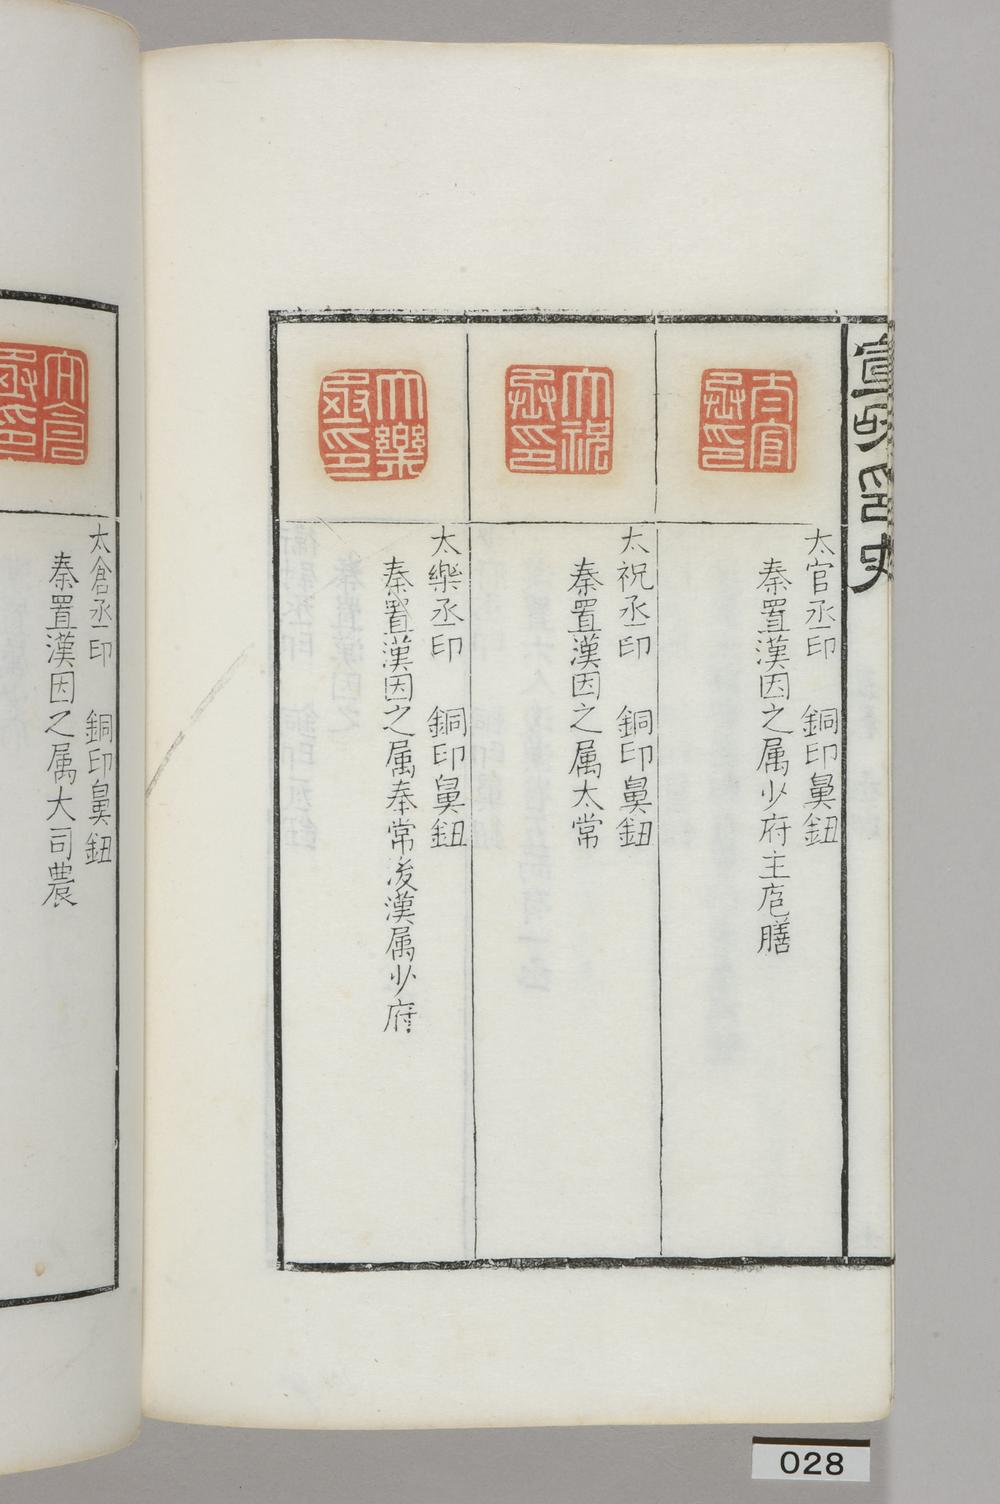 宣和印史
太官丞印
太官丞印　銅印鼻鈕
秦置漢因之属少府主庖膳
太祝丞印
太祝丞印　銅印鼻鈕
秦置漢因之属太常
太樂丞印
太樂丞印　銅印鼻鈕
秦置漢因之属奉常後漢属少府
太倉丞印
太倉丞印　銅印鼻鈕
秦置漢因之属大司農
028